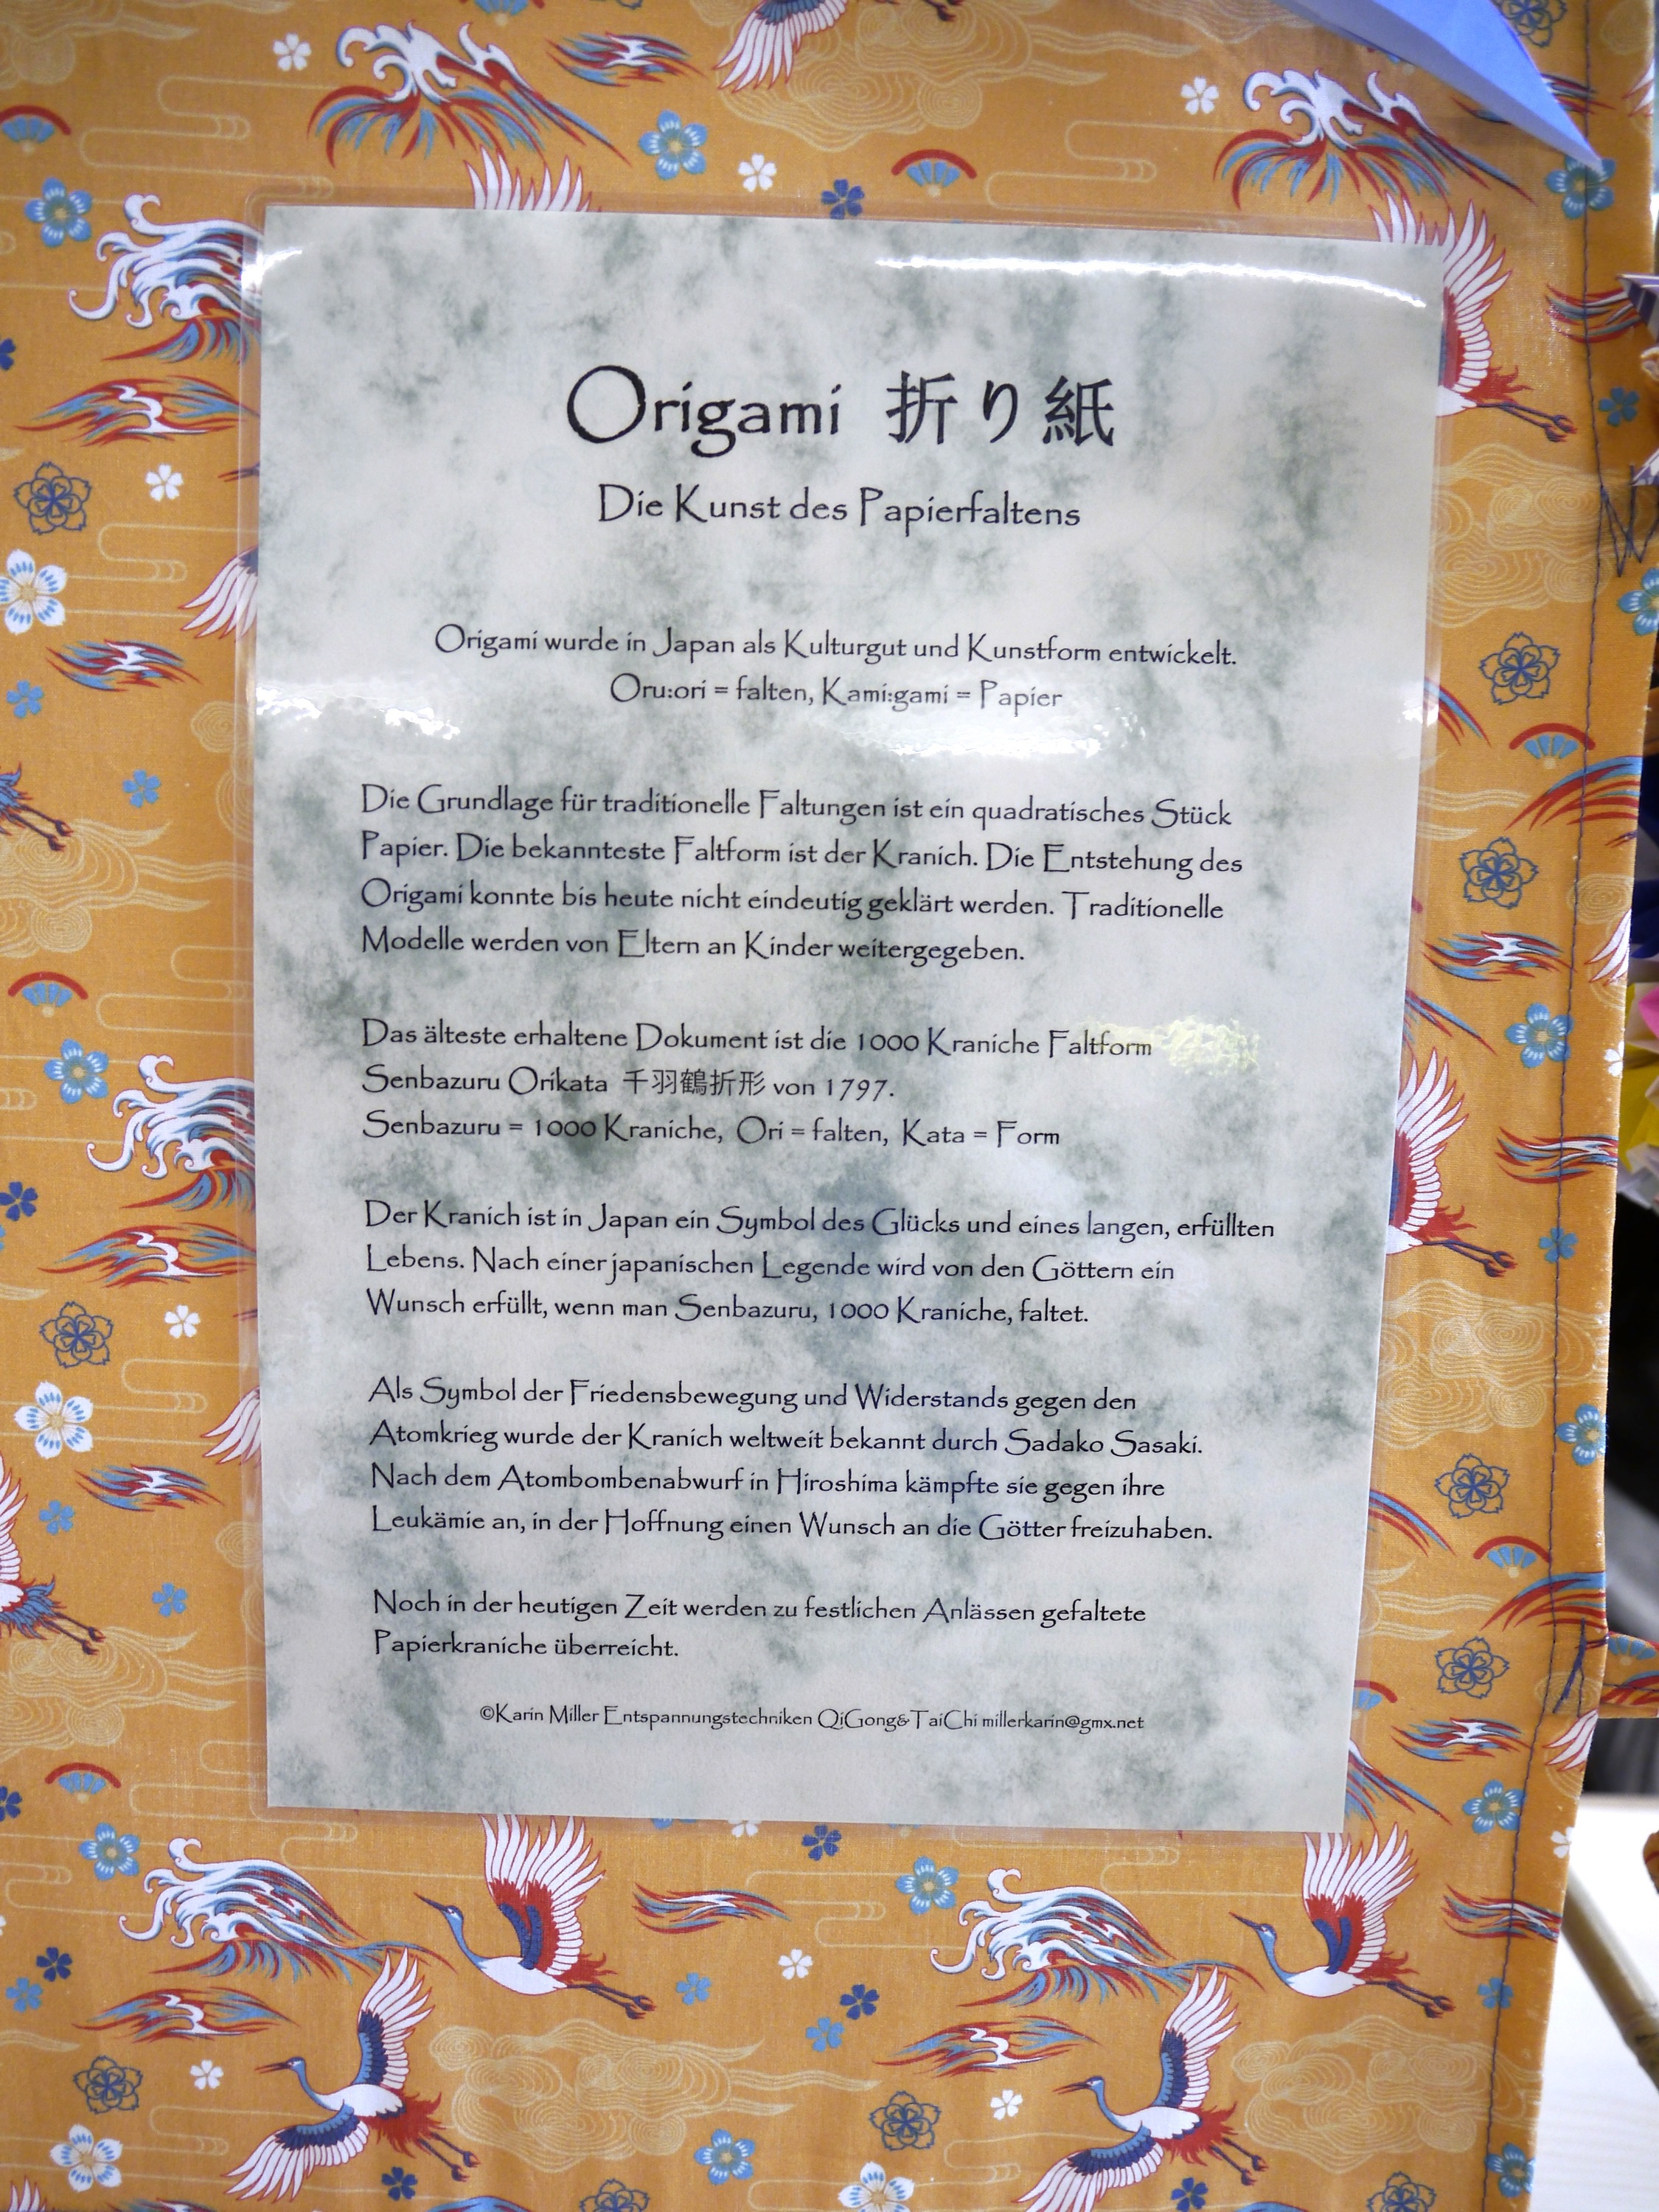 Origami 折り紙
Die Kunst des Papierfaltens
Origami wurde in Japan als Kulturgut und Kunstform entwickelt.
Oru:ori = falten, Kami:gami = Papier
Die Grundlage für traditionelle Faltungen ist ein quadratisches Stück
Papier. Die bekannteste Faltform ist der Kranich. Die Entstehung des
Origami konnte bis heute nicht eindeutig geklärt werden. Traditionelle
Modelle werden von Eltern an Kinder weitergegeben.
Das älteste erhaltene Dokument ist die 1000 Kraniche Faltform
Senbazuru Orikata 千羽鶴折形 von 1797.
Senbazuru = 1000 Kraniche, Ori = falten, Kata = Form
Der Kranich ist in Japan ein Symbol des Glücks und eines langen, erfüllten
Lebens. Nach einer japanischen Legende wird von den Göttern ein
Wunsch erfüllt, wenn man Senbazuru, 1000 Kraniche, faltet.
Als Symbol der Friedensbewegung und Widerstands gegen den
Atomkrieg wurde der Kranich weltweit bekannt durch Sadako Sasaki.
Nach dem Atombombenabwurf in Hiroshima kämpfte sie gegen ihre
Leukämie an, in der Hoffnung einen Wunsch an die Götter freizuhaben.
Noch in der heutigen Zeit werden zu festlichen Anlässen gefaltete
Papierkraniche überreicht.
©Karin Miller Entspannungstechniken QiGong&TaiChi millerkarin@gmx.net